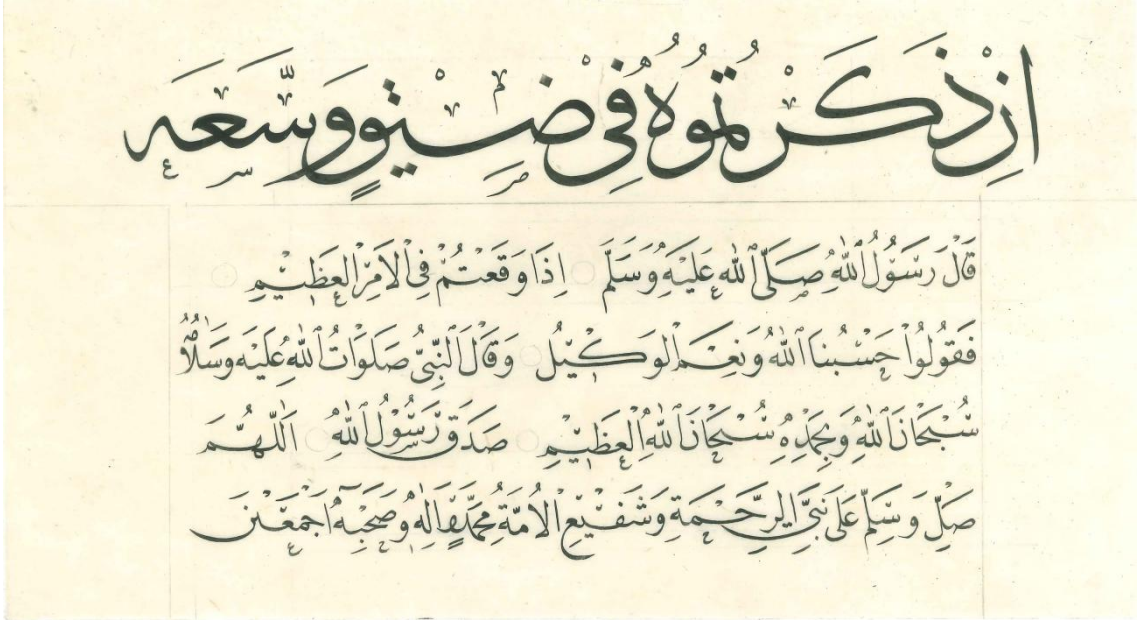 اِنْ ذَكَرْتُمُوهُ فِي ضِيْقٍ وَسَّعَهُ
قَالَ رَسُوْلُ اللهِ صَلَّى اللهُ عَلَيْهِ وَسَلَّمَ اِذَا وَقَعْتُمْ فِي الْاَمْرِ الْعَظِيْمِ
فَقُولُوْا حَسْبُنَا اللهُ وَنِعْمَ الْوَكِيْلُ وَقَالَ النَّبِيُّ صَلَوَاتُ اللهِ عَلَيْهِ وَسَلَامُهُ
سُبْحَانَ اللهِ وَبِحَمْدِهِ سُبْحَانَ اللهِ الْعَظِيْمِ صَدَقَ رَسُوْلُ اللهِ اَللّٰهُمَّ
صَلِّ وَسَلِّمْ عَلَى نَبِيِّ الرَّحْمَةِ وَشَفِيْعِ الْاُمَّةِ مُحَمَّدٍ وَاٰلِهِ وَصَحْبِهِ اَجْمَعِيْنَ